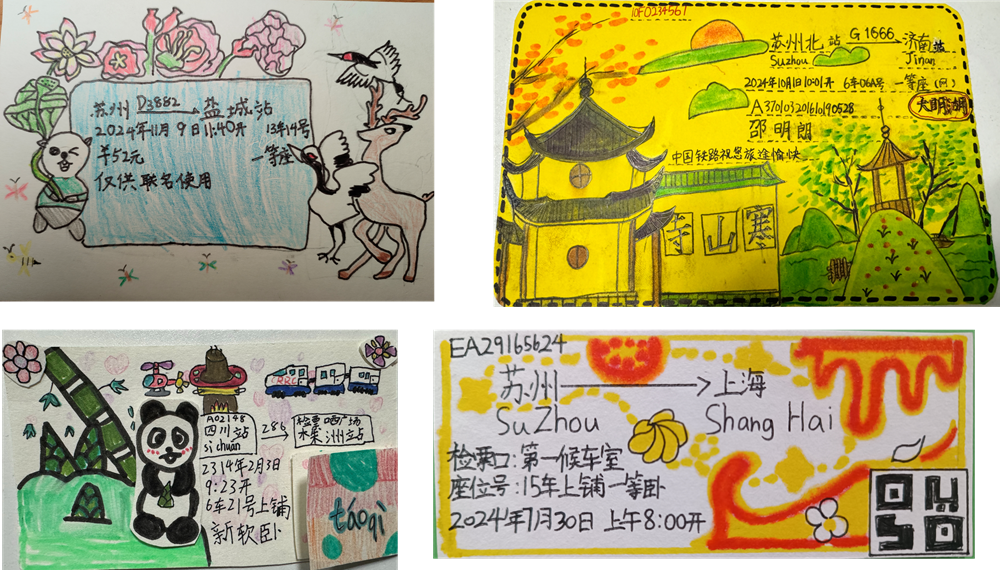 苏州 D3882 盐城站
2024年11月9日11:40开 13车14号
￥52元 一等座
仅供联名使用
10F0234567
苏州北站 G1666 济南站
Suzhou Jinan
2024年10月1日10:01开 6车06A号 一等座(网)
大明湖
A370103201610190528
邵明朗
中国铁路祝您旅途愉快
寺山寒
CRRC
A02148
四川站
sichuan
286
检票哂广场
木渎洲站
2314年2月3日
9:23开
6车21号上铺
新软卧
táoqì
EA29165624
苏州 上海
SuZhou Shang Hai
检票口:第一候车室
座位号:15车上铺一等卧
2024年7月30日 上午8:00开